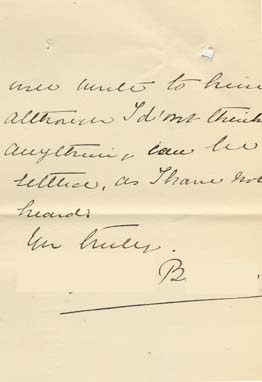 will write to him
although I d'ont think
anything can be
settled, as I have not
heard.
Yrs truly.
B